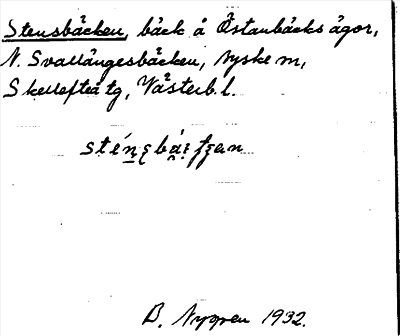 Stensbäcken, bäck å Östanbäcks ägor,
N. Svallängesbäcken, Nyske m,
Skellefteå tg, Västerb. l.
B. Nygren 1932.